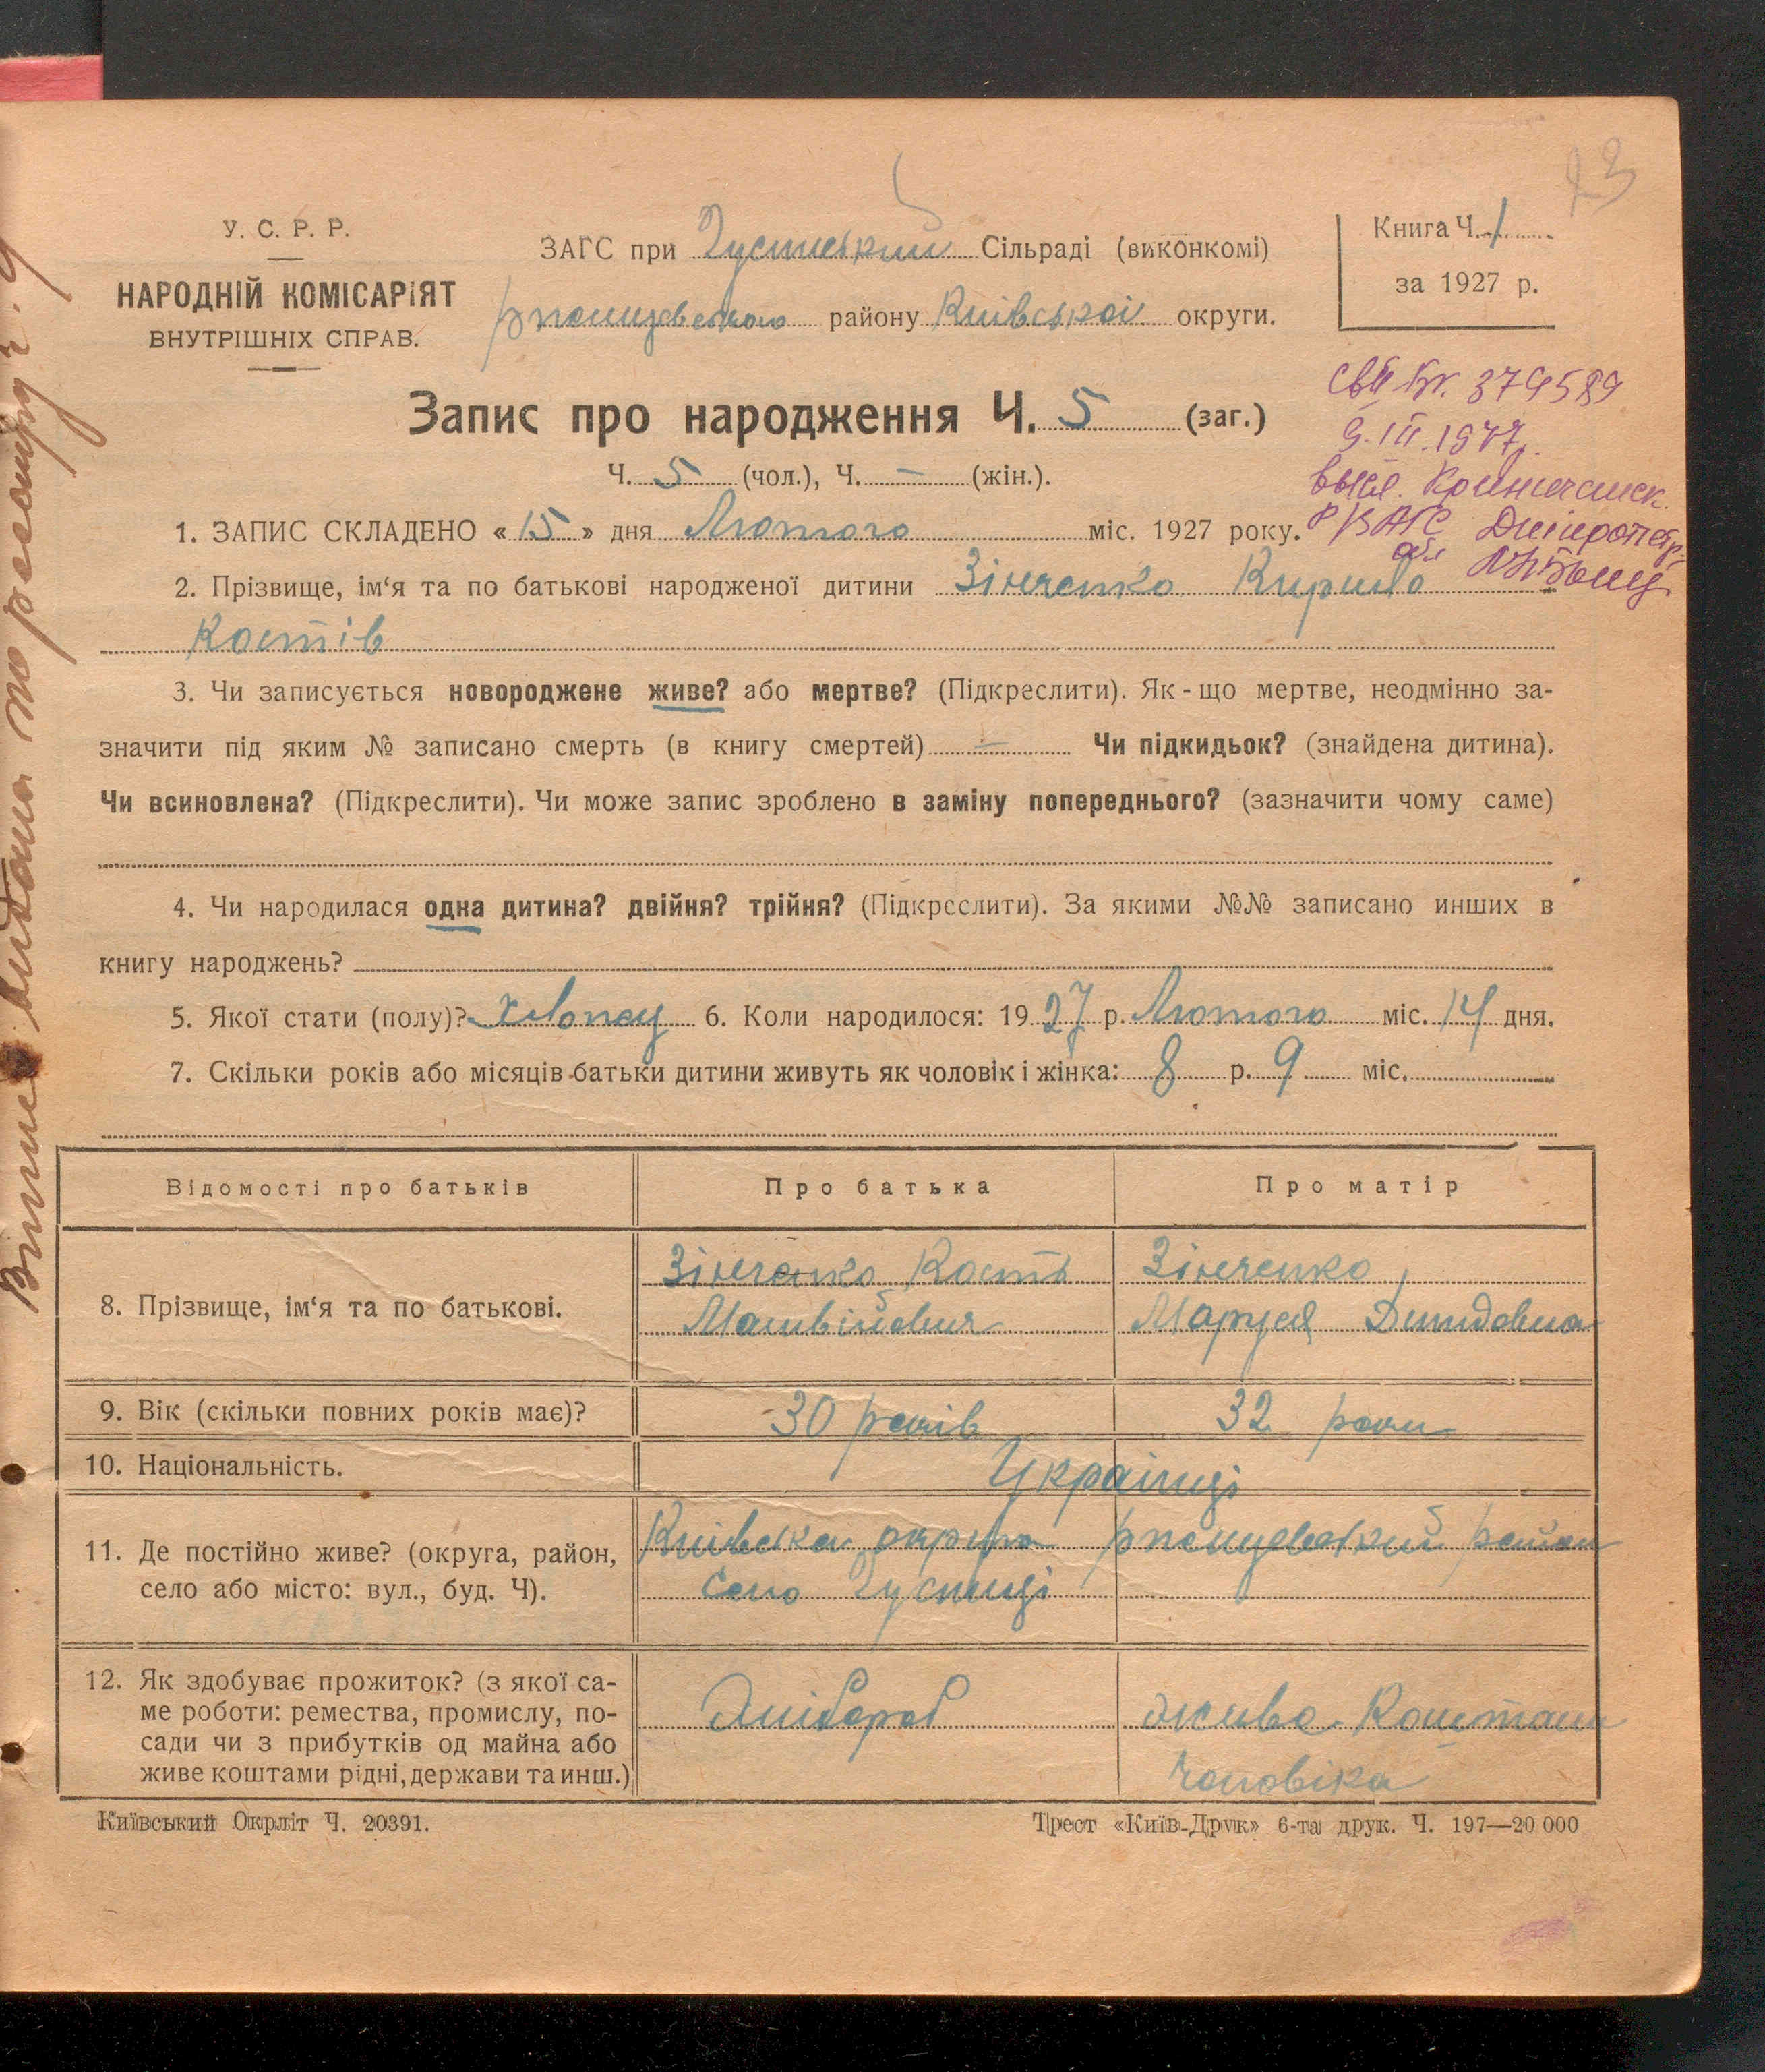 У. С. Р. Р.
НАРОДНІЙ КОМІСАРІЯТ
ВНУТРІШНІХ СПРАВ.
ЗАГС при Сільраді (виконкомі)
району Київської округи.
Книга Ч. 1
за 1927 р.
Запис про народження Ч. 5 (заг.)
Ч. 5 (чол.), Ч. — (жін.).
379589
9.III.1947
1. ЗАПИС СКЛАДЕНО «15» дня Лютого міс. 1927 року.
2. Прізвище, ім‘я та по батькові народженої дитини Зінченко Кирило
Костів
3. Чи записується новороджене живе? або мертве? (Підкреслити). Як-що мертве, неодмінно за-
значити під яким № записано смерть (в книгу смертей) — Чи підкидьок? (знайдена дитина).
Чи всиновлена? (Підкреслити). Чи може запис зроблено в заміну попереднього? (зазначити чому саме)
4. Чи народилася одна дитина? двійня? трійня? (Підкреслити). За якими №№ записано инших в
книгу народжень?
5. Якої стати (полу)? хлопец 6. Коли народилося: 1927 р. Лютого міс. 14 дня.
7. Скільки років або місяців батьки дитини живуть як чоловік і жінка: 8 р. 9 міс.
Відомості про батьків
Про батька
Про матір
8. Прізвище, ім‘я та по батькові.
Зінченко Кость
Матвійович
Зінченко
Маруся Демидовна
9. Вік (скільки повних років має)?
30 років
32 роки
10. Національність.
Українці
11. Де постійно живе? (округа, район,
село або місто: вул., буд. Ч).
Київська округа район
село
12. Як здобуває прожиток? (з якої са-
ме роботи: ремества, промислу, по-
сади чи з прибутків од майна або
живе коштами рідні, держави та инш.)
Хлібороб
живе Коштами
чоловіка
Київський Окрліт Ч. 20391.
Трест «Київ-Друк» 6-та друк. Ч. 197—20 000